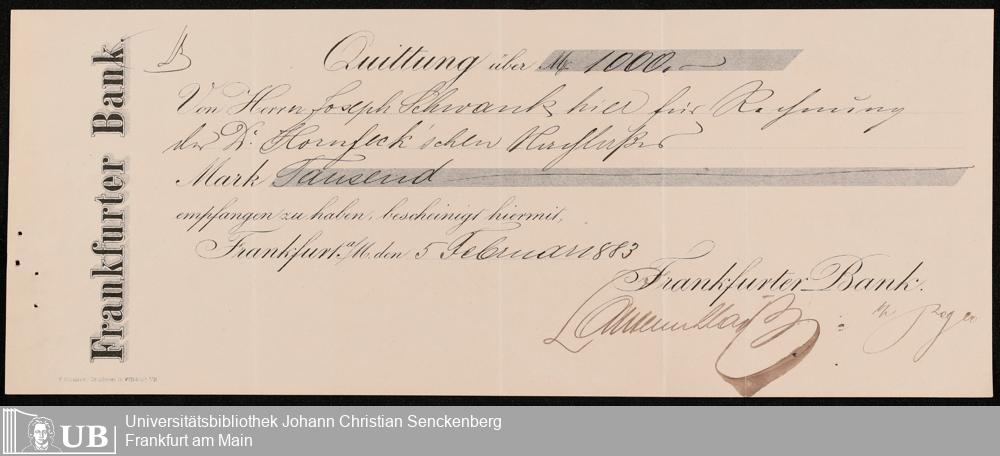 Frankfurter Bank.
B
Quittung über M. 1000.—
Von Herrn Joseph Schwank hier für Rechnung
der Dr. Hornfeck'schen Nachlaßes
Mark Tausend
empfangen zu haben, bescheinigt hiermit,
Frankfurt a/M. den 5 Februar 1883
Frankfurter Bank.
UB
Universitätsbibliothek Johann Christian Senckenberg
Frankfurt am Main